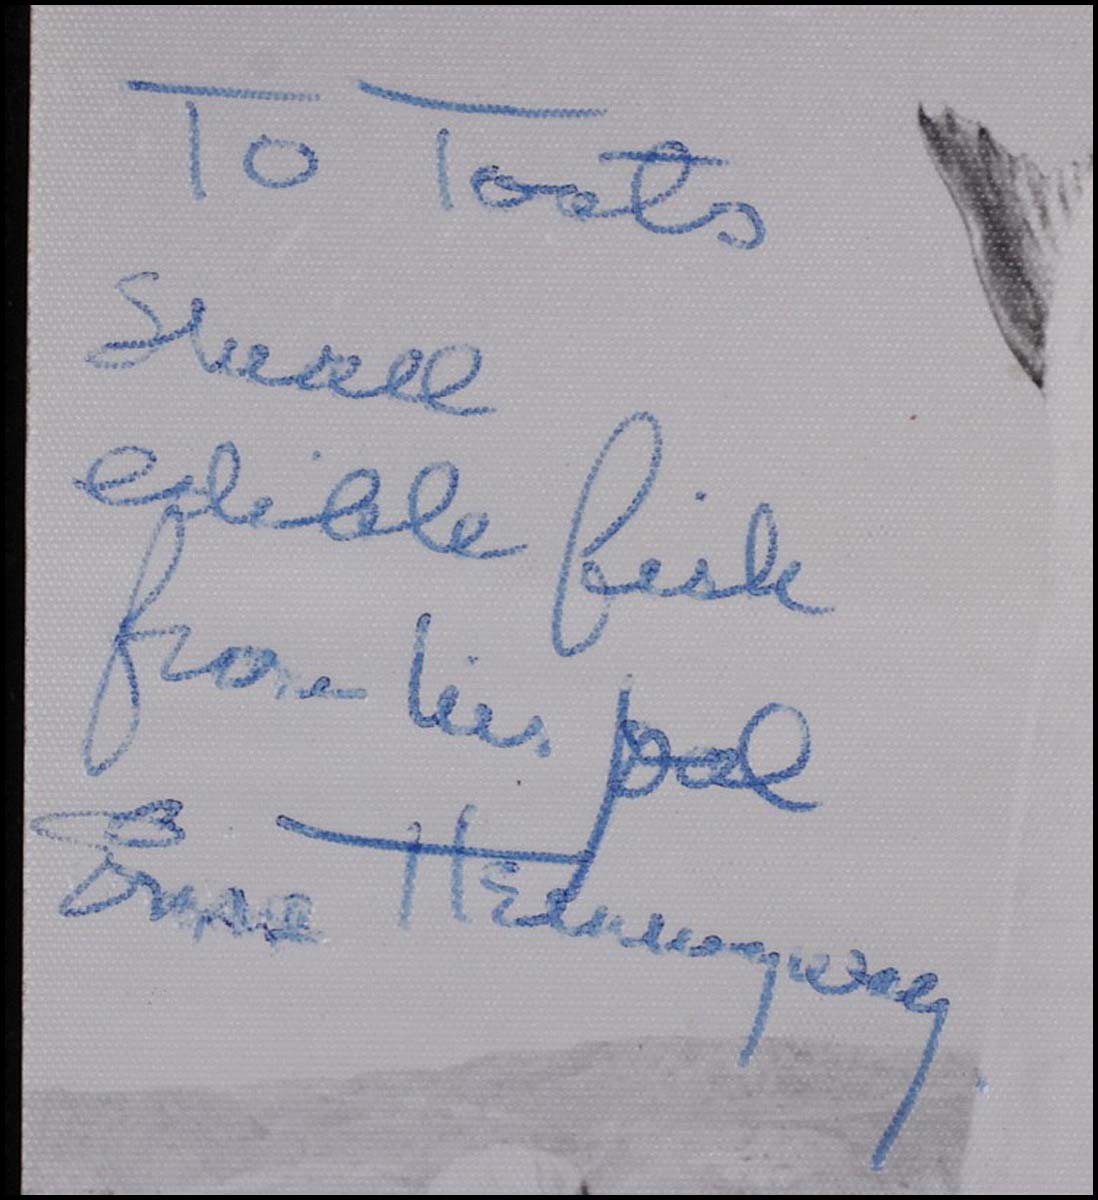 To Toots
small
edible fish
from his pal
Ernest Hemingway